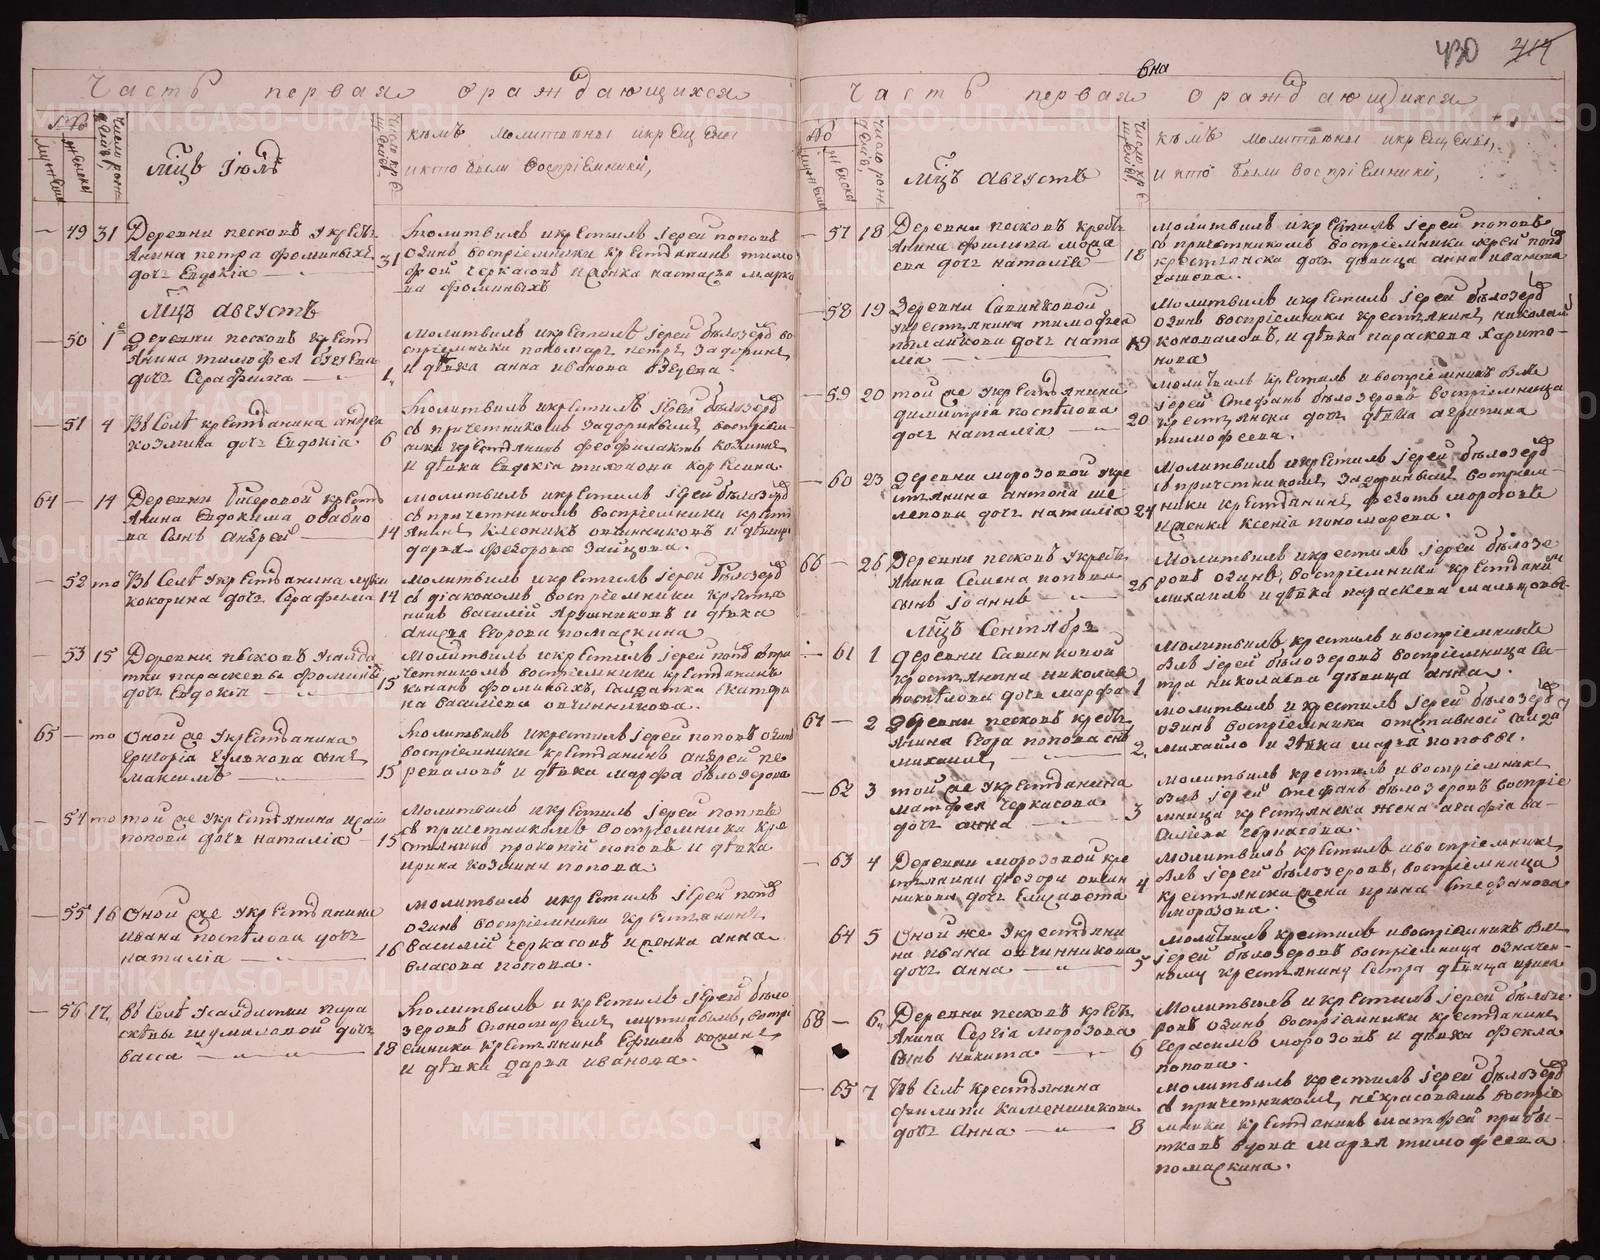 430 414
Часть первая ораждающихся
№
мужеска
женска
число рожденiя
мцъ Iюль
число крещенiя
къмъ молитвены икрещены
икто были воспрiемники,
49 31 Деревни песковъ укресть
янина петра фоминыхъ
дочь Евдокiа
31 молитвилъ икрестилъ iерей поповъ
одинъ воспрiемники крестьянинъ тимо
фей черкасовъ ижонка настасья марко
ва фоминыхъ
мцъ августъ
50 1 деревни песковъ крест
янина тимофея
дочь Серафима
1 молитвилъ икрестилъ iерей бѣлозеровъ во
спрiемники пономарь петръ задоринъ
и дѣвка анна иванова
51 4 Въ Селѣ крестьянина андрея
козмина дочь Евдокiа
6 молитвилъ икрестилъ iерей бѣлозеровъ
съ причетникомъ задоринымъ воспрiем
ники крестьянинъ феофилактъ кожинъ
и дѣвка Евдокiа тихонова корелина.
64 14 Деревни крестъ
янина Евдокима
ва Сынъ андрей
14 молитвилъ икрестилъ iерей бѣлозеровъ
съ причетникомъ воспрiемники крестъ
янинъ овчинниковъ и дѣвица
дарья федорова зайцова.
52 то Въ Селѣ укрестьянина луки
кокорина дочь Серафима
14 молитвилъ икрестилъ iерей бѣлозеровъ
съ дiакономъ воспрiемники крестья
нинъ василiй ярушниковъ и дѣвка
анисья Егорова помаскина
53 15 Деревни песковъ усолда
тки параскевы фоминыхъ
дочь Евдокiа
15 молитвилъ икрестилъ iерей поповъ съ при
четникомъ воспрiемники крестьянинъ
фоминыхъ, Солдатка Екатери
на василiева овчинникова.
65 то Оной же укрестьянина
григорiа сынъ
максимъ
15 молитвилъ икрестилъ iерей поповъ одинъ
воспрiемники крестьянинъ андрей пе
реваловъ и дѣвка марфа бѣлозерова
54 то той же укрестьянина исаiи
попова дочь наталiа
15 молитвилъ икрестилъ iерей поповъ
съ причетникомъ воспрiемники кре
стьянинъ прокопiй поповъ и дѣвка
ирина козмина попова.
55 16 Оной же укрестьянина
ивана поспѣлова дочь
наталiа
16 молитвилъ икрестилъ iерей поповъ
одинъ воспрiемники крестьянинъ
василiй черкасовъ ижонка анна
власова попова.
56 17 въ Селѣ усолдатки пара
скевы шумиловой дочь
васса
18 молитвилъ и крестилъ iерей бѣло
зеровъ Спономаремъ воспрi
емники крестьянинъ Ефимъ кожинъ
и дѣвка дарья иванова.
Часть первая ораждающихся
№
мужеска
женска
число рожденiя
мцъ августъ
число крещенiя
къмъ молитвены икрещены,
и кто были воспрiемники,
57 18 Деревни песковъ кресть
янина филипа мока
ева дочь наталiа
18 молитвилъ икрестилъ iерей поповъ
съ причетникомъ воспрiемники
крестьянска дочь дѣвица анна иванова
58 19 Деревни Савинковой
укрестьянина тимофея
дочь ната
лiа
19 молитвилъ икрестилъ iерей бѣлозеровъ
одинъ воспрiемники крестьянинъ николай
коноваловъ, и дѣвка параскева харито-
нова
59 20 той же укрестьянина
димитрiа поспѣлова
дочь наталiа
20 молитвилъ крестилъ ивоспрiемникъ былъ
iерей Стефанъ бѣлозеровъ воспрiемница
крестьянска дочь дѣвка агрипина
тимофеева.
60 23 деревни морозовой укре
стьянина антона ше
лепова дочь наталiа
24 молитвилъ икрестилъ iерей бѣлозеровъ
съ причетникомъ задоринымъ воспрiем-
ники крестьянинъ федотъ морозовъ
ижонка Ксенiа пономарева.
66 26 Деревни песковъ укресть
янина Семена попова
сынъ Iоаннъ
26 молитвилъ икрестилъ iерей бѣлозе
ровъ одинъ, воспрiемники крестьянинъ
михаилъ идѣвка параскева мальцовы
мцъ Сентябрь
61 1 деревни Савинковой
укрестьянина николая
поспѣлова дочь марфа
1 молитвилъ, крестилъ ивоспрiемникъ
былъ iерей бѣлозеровъ воспрiемница Се-
стра николаева дѣвица анна.
67 2 деревни песковъ кресть
янина Егора попова сынъ
михаилъ
2 молитвилъ и крестилъ iерей бѣлозеровъ
одинъ воспрiемники отставной солдатъ
михайло и дѣвка марья поповы.
62 3 той же укрестьянина
матфея черкасова
дочь анна
3 молитвилъ крестилъ ивоспрiемникъ
былъ iерей Стефанъ бѣлозеровъ воспрiе
мница крестьянска жена агафiа ва-
силiева черкасова.
63 4 Деревни морозовой кре
стьянина федора овчин
никова дочь Елисавета
4 молитвилъ крестилъ ивоспрiемникъ
былъ iерей бѣлозеровъ, воспрiемница
крестьянска жена ирина Стефанова
морозова.
64 5 Оной же укрестьяни
на ивана овчинникова
дочь анна
5 молитвилъ крестилъ ивоспрiемникъ былъ
iерей бѣлозеровъ воспрiемница означен-
ному крестьянину Сестра дѣвица ирина
68 6 Деревни песковъ кресть
янина Сергiа морозова
сынъ никита
6 молитвилъ и крестилъ iерей бѣлозе
ровъ одинъ воспрiемники крестьянинъ
герасимъ морозовъ и дѣвка фекла
попова.
65 7 Въ Селѣ крестьянина
филипа каменшикова
дочь Анна
8 молитвилъ крестилъ iерей бѣлозеровъ
съ причетникомъ некрасовымъ воспрiе
мники крестьянинъ матфей прибы-
тковъ вдова марья тимофеева
помаскина.
METRIKI.GASO-URAL.RU